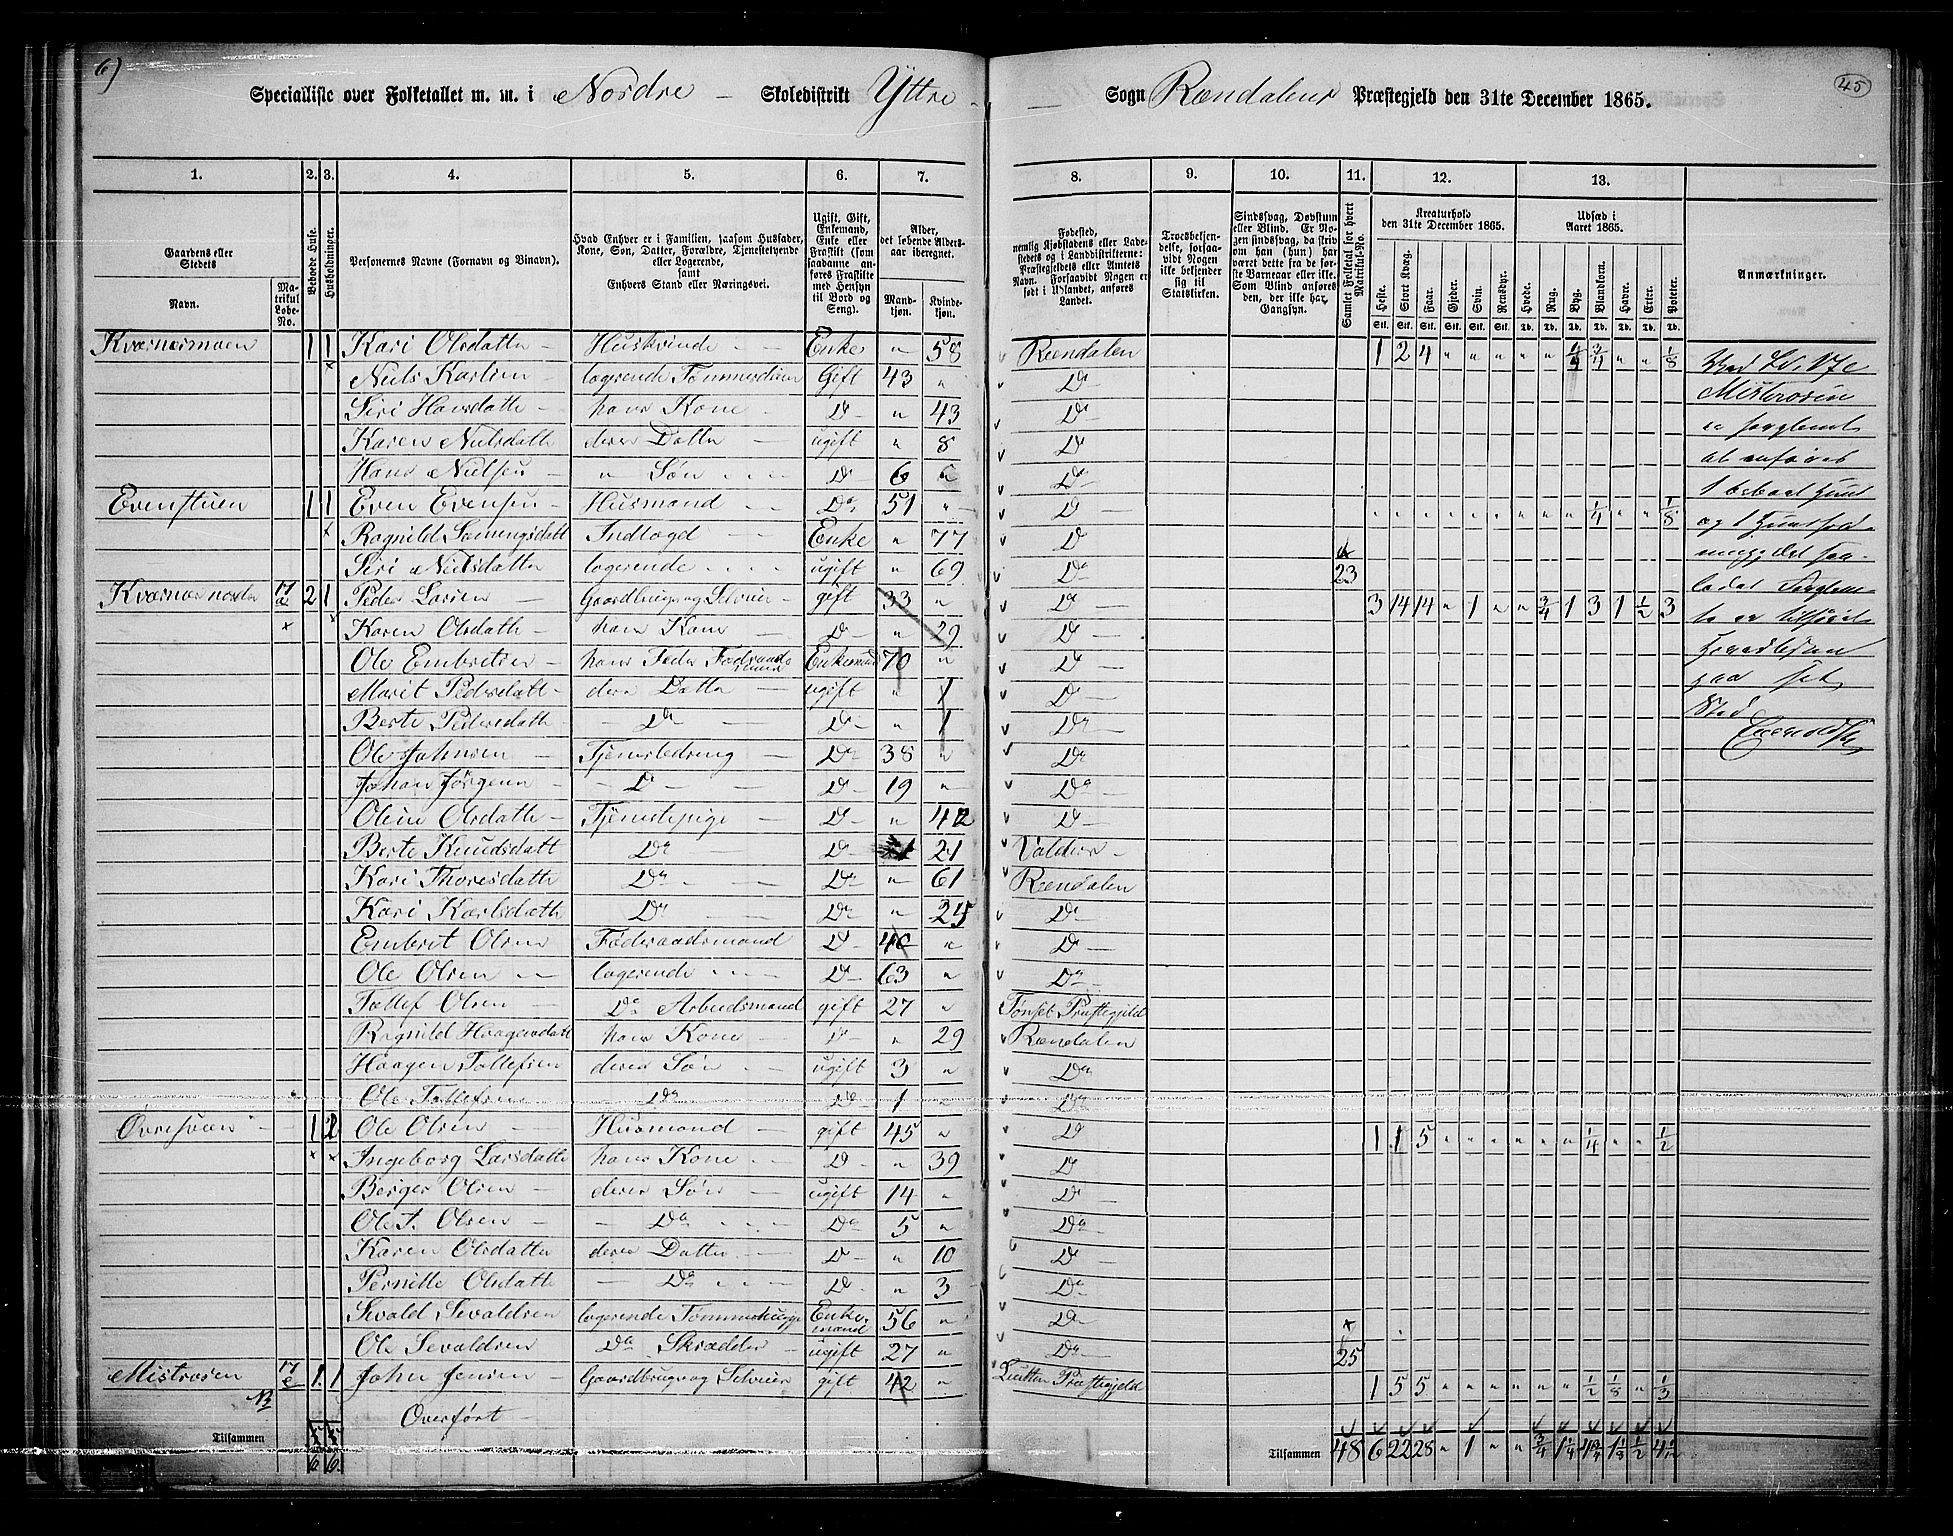 6)
45
Specialliste over Folketallet m. m. i Nordre Skoledistrikt Yttre Sogn Rændalens Præstegjeld den 31te December 1865.
1. 2. 3. 4. 5. 6. 7. 8. 9. 10. 11. 12. 13. 1.
Gaardens eller Stedets
Navn.
Matrikul Løbe-No.
Beboede Huse.
Husholdninger.
Personernes Navne (Fornavn og Binavn).
Hvad Enhver er i Familien, saasom Husfader, Kone, Søn, Datter, Forældre, Tjenestetyende eller Logerende, samt Enhvers Stand eller Næringsvei.
Ugift, Gift, Enkemand, Enke eller Fraskilt (som saadanne anføres Fraskilte med Hensyn til Bord og Seng).
Alder, det løbende Aldersaar iberegnet.
Mandkjøn. Kvindekjøn.
Fødested, nemlig Kjøbstadens eller Ladestedets og i Landdistrikterne: Præstegjeldets eller Amtets Navn. Forsaavidt Nogen er født i Udlandet, anføres Landet.
Troesbekjendelse, forsaavidt Nogen ikke bekjender sig til Statskirken.
Sindssvag, Døvstum eller Blind. Er Nogen sindssvag, da skriv om han (hun) har været dette fra de første Barneaar eller ikke. Som Blind anføres den, der ikke har Gangsyn.
Samlet Folketal for hvert Matrikul-No.
Kreaturhold den 31te December 1865.
Heste. Stort Kvæg. Faar. Gjeder. Svin. Rensdyr.
Udsæd i Aaret 1865.
Hvede. Rug. Byg. Blandkorn. Havre. Erter. Poteter.
Stk. Stk. Stk. Stk. Stk. Stk. Td. Td. Td. Td. Td. Td. Td.
Anmærkninger.
Kværnesmoen 1 1 Kari Olsdatter Huskvinde Enke " 58 Rændalen 1 2 4 " " " " " 1/4 3/4 " " 1/8
Niels Karlsen logerende Gift 43 " Do
Siri Hansdatter hans Kone Do " 43 Do
Karen Nielsdatter deres Datter ugift " 8 Do
Hans Nielsen " Søn Do 6 " Do
Evenstuen 1 1 Even Evensen Husmand Do 51 " Do " " " " " " " " " 1/4 " " 1/8
Ragnild Indlagd Enke " 77 Do
Siri Nielsdatter logerende ugift " 69 Do 23
Kværnes nordre 17 a 2 1 Peder Larsen Gaardbruger og Selveier gift 33 " Do 3 14 14 " 1 " " 3/4 1 3 1 1/2 3
Karen Olsdatter hans Kone Do " 29 Do
Ole Embretsen hans Fader Føderaadsmand Enkemand 70 " Do
Marit Pedersdatter deres Datter ugift " 1 Do
Berte Pedersdatter Do Do " 1 Do
Ole Johnsen Tjenestedreng Do 38 " Do
Johan Jørgens Do Do 19 " Do
Oline Olsdatter Tjenestepige Do " 42 Do
Berte Knudsdatter Do Do 21 Valders
Kari Thoresdatter Do Do " 61 Rændalen
Kari Karlsdatter Do Do " 25 Do
Embret Olsen Føderaadsmand Do 40 " Do
Ole Olsen logerende Do 63 " Do
Tollef Olsen Do Arbeidsmand gift 27 " Tønset Præstegjeld
Ragnild Haagensdatter hans Kone Do " 29 Rændalen
Haagen Tollefsen deres Søn ugift 3 " Do
Ole Tollefsen Do Do 1 " Do
Øvre 1 2 Ole Olsen Husmand gift 45 " Do 1 1 5 " " " " " " 1/4 " " 1/2
Ingeborg Larsdatter hans Kone Do " 39 Do
Berger Olsen deres Søn ugift 14 " Do
Ole T. Olsen Do Do 5 " Do
Karen Olsdatter deres Datter Do " 10 Do
Pernille Olsdatter Do Do " 3 Do
Sevald Sevaldsen logerende Tømmerhugger Enkemand 56 " Do
Ole Sevaldsen Do Skrædder ugift 27 " Do 25
Mistrosen 17 e 1 1 John Jensen Gaardbruger og Selveier gift 42 " Præstegjeld 1 5 5 " " " " " " 1/2 1/8 " 1/3
Overført
Tilsammen 5 5
6 6
Tilsammen 48 6 22 28 " 1 " " 3/4 1 1/4 4 3/4 1 1/8 1/2 4 1/12
Ved
Mistrosen
er forglemt
at anføres
1 beboet Huus